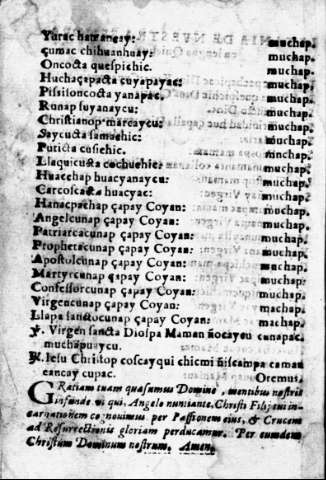 Yurac hamancay: muchap.
çumac chihuanhuay: muchap.
Oncocta quespichic. muchap.
Huchaçapacta cuyapayac: muchap.
Putisoncocta yanapac. muchap.
Runap suyanaycu: muchap.
Christianop marcaycu: muchap.
Saycucta samachic: muchap.
Puticta cusichic. muchap.
Llaquicucta cochuchic: muchap.
Huacchap huacyanaycu: muchap.
Carcoscacta huacyac: muchap.
Hanacpachap çapay Coyan: muchap.
Angelcunap çapay Coyan: muchap.
Patriarcacunap çapay Coyan: muchap.
Prophetacunap çapay Coyan: muchap.
Apostolcunap çapay Coyan: muchap.
Martyrcunap çapay Coyan: muchap.
Confessorcunap çapay Coyan: muchap.
Virgencunap çapay Coyan: muchap.
Llapa sanctocunap çapay Coyan: muchap.
℣. Virgen sancta Diospa Maman ñocaycu cunapac.
muchapuaycu.
℟. Iesu Christop coscayqui chicmi ñiscampa caman
cancay cupac. Oremus.
GRatiam tuam quæsumus Domine, mentibus nostris
infunde vt qui, Angelo nuntiante, Christi Filij tui in-
carnationem cognouimus per Passionem eius, & Crucem
ad Resurrectionis gloriam perducamur. Per eumdem
Christum Dominum nostrum, Amen.